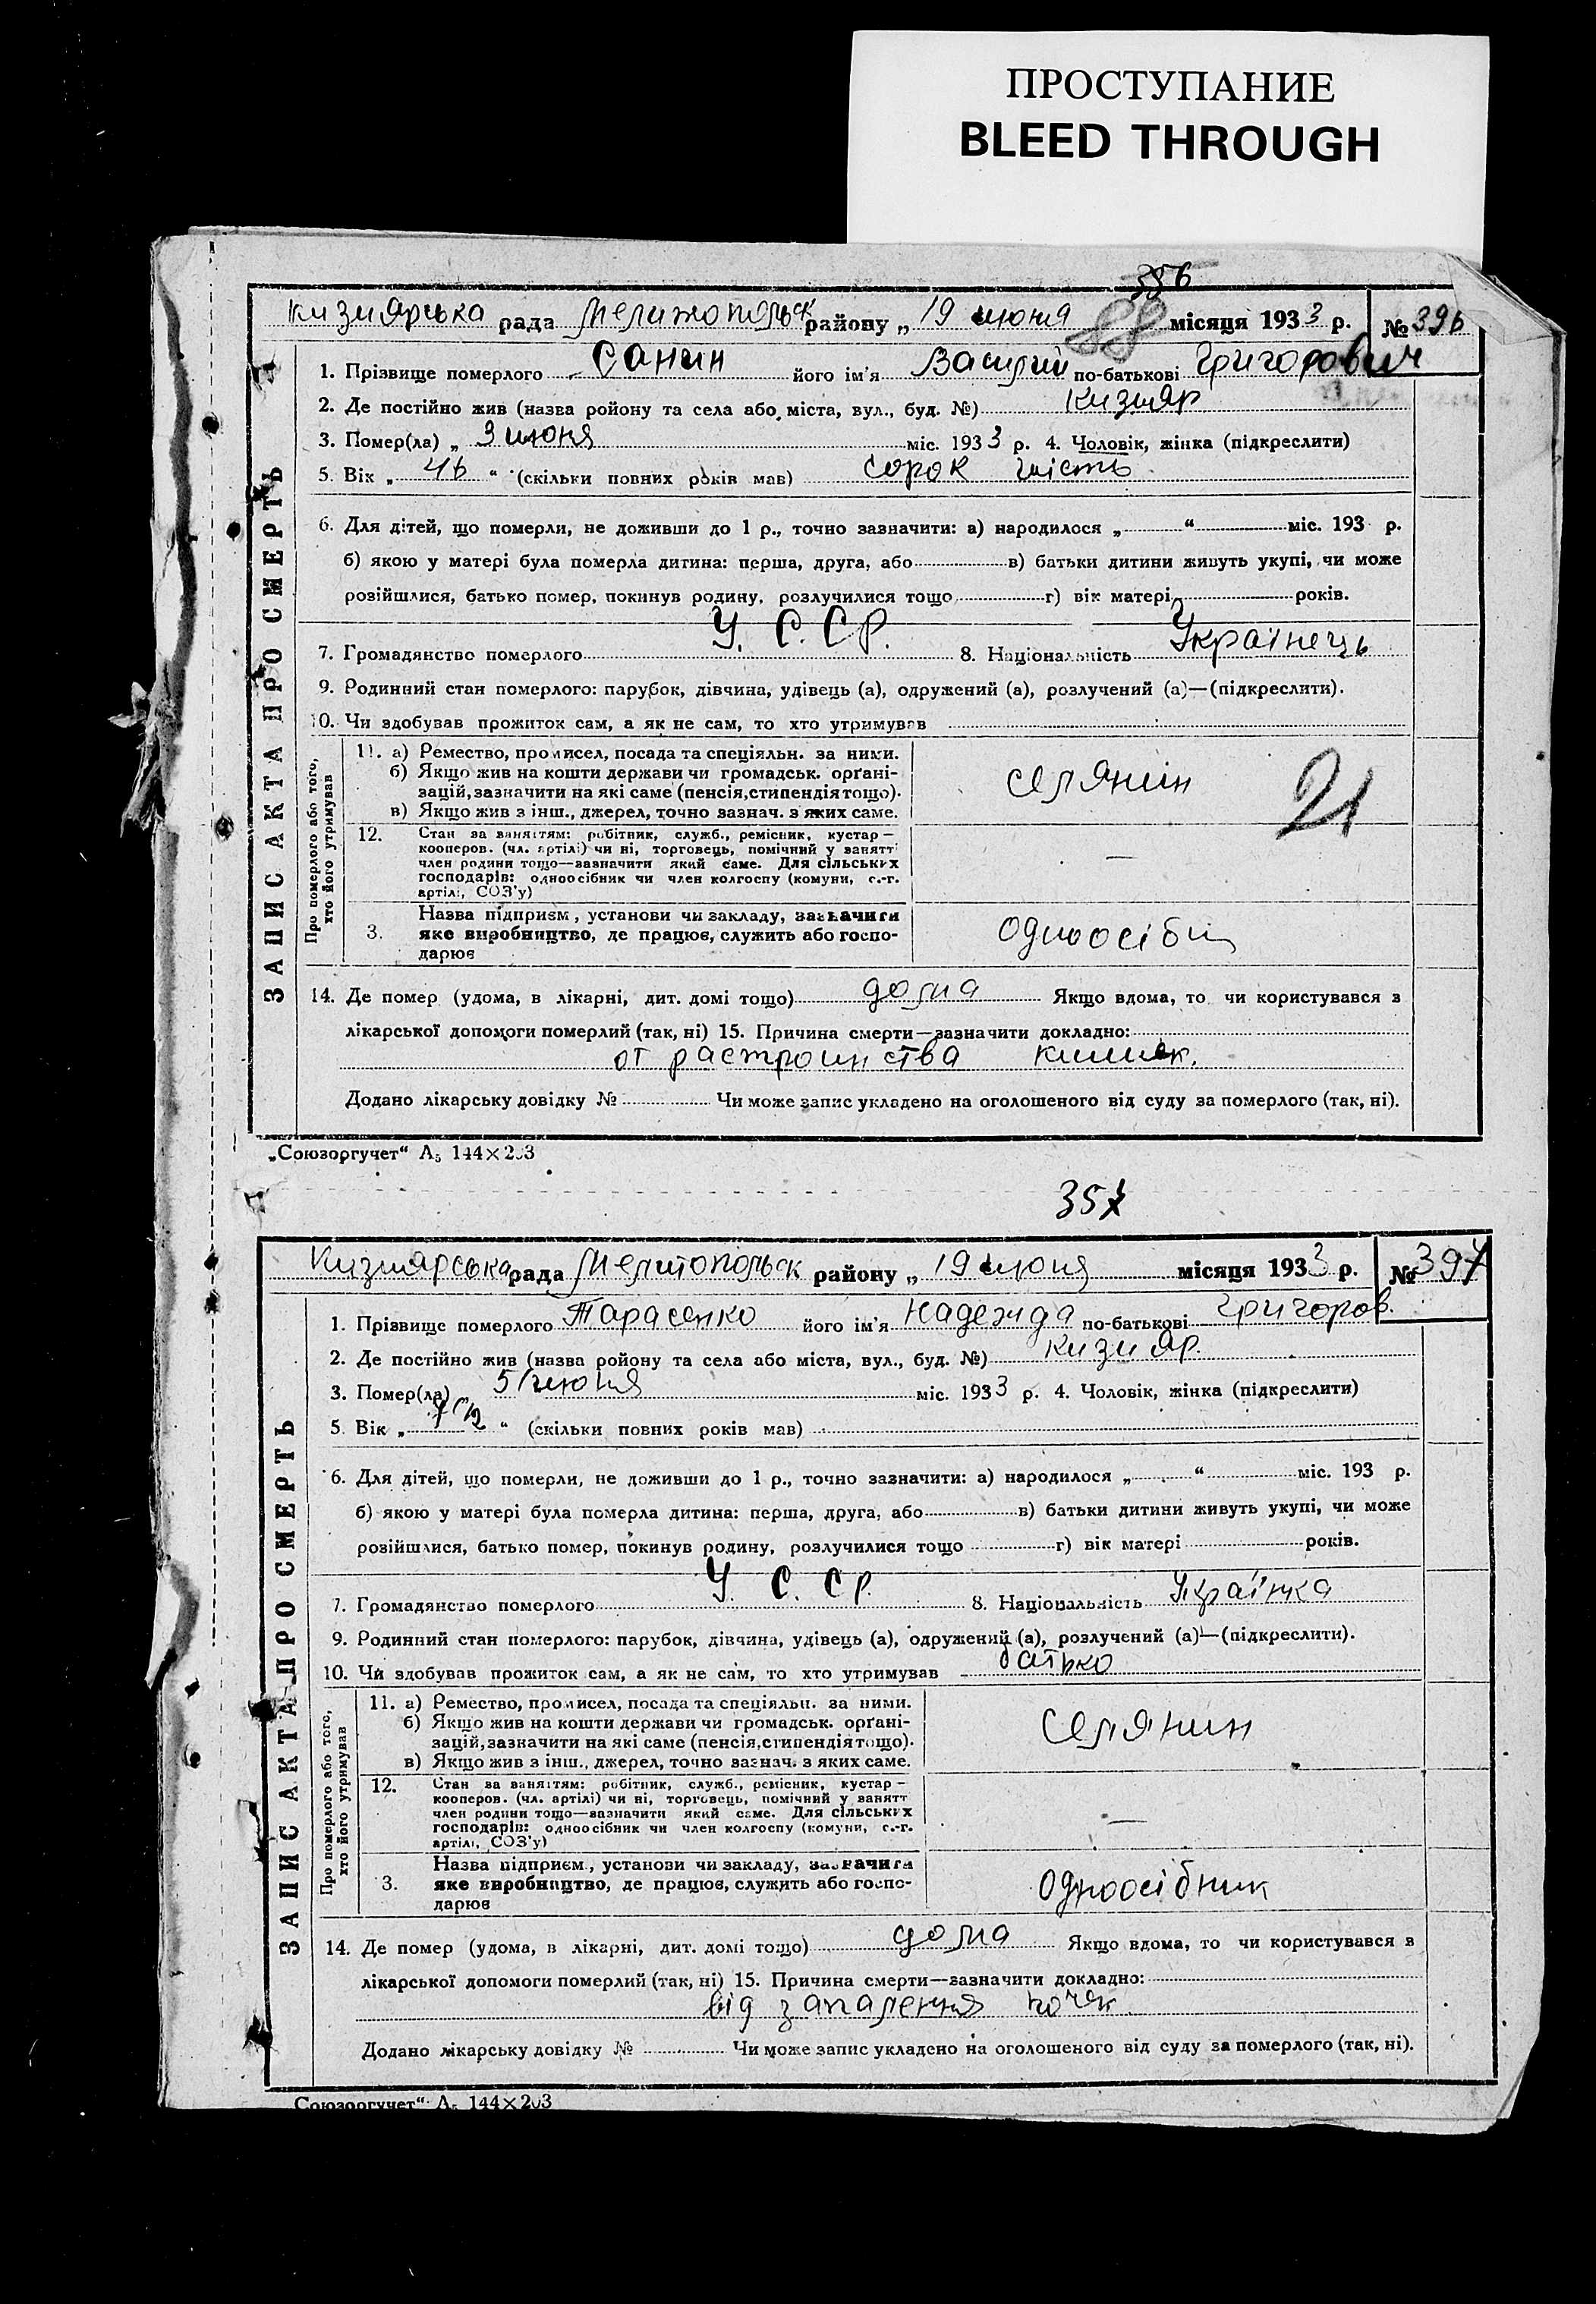 ПРОСТУПАНИЕ
BLEED THROUGH
356
Кизиярська рада Мелитопольск району „ 19 июня 88 місяця 1933 р. № 396
ЗАПИС АКТА ПРО СМЕРТЬ
1. Прізвище померлого Санин його ім'я Василий по-батькові Григорович
2. Де постійно жив (назва ройону та села або міста, вул., буд. №) Кизияр
3. Помер(ла) „ 3 июня міс. 1933 р. 4. Чоловік, жінка (підкреслити)
5. Вік „ 46 “ (скільки повних років мав) сорок шість
6. Для дітей, що померли, не доживши до 1 р., точно зазначити: а) народилося „ “ міс. 193 р.
б) якою у матері була померла дитина: перша, друга, або в) батьки дитини живуть укупі, чи може
розійшлися, батько помер, покинув родину, розлучилися тощо г) вік матері років.
7. Громадянство померлого У. С. С. Р. 8. Національність Українець
9. Родинний стан померлого: парубок, дівчина, удівець (а), одружений (а), розлучений (а)—(підкреслити).
10. Чи здобував прожиток сам, а як не сам, то хто утримував
Про померлого або того, хто його утримував
11. а) Ремество, промисел, посада та спеціяльн. за ними.
б) Якщо жив на кошти держави чи громадськ. орґані-
зацій, зазначити на які саме (пенсія, стипендія тощо).
в) Якщо жив з інш., джерел, точно зазнач. з яких саме.
селянин
21
12. Стан за заняттям: робітник, служб., ремісник, кустар —
кооперов. (чл. артілі) чи ні, торговець, помічний у занятт
член родини тощо—зазначити який саме. Для сільських
господарів: одноосібник чи член колгоспу (комуни, с.-г.
артілі, СОЗ'у)
—
3. Назва підприєм., установи чи закладу, зазначити
яке виробництво, де працює, служить або госпо-
дарює
одноосібн
14. Де помер (удома, в лікарні, дит. домі тощо) дома Якщо вдома, то чи користувався з
лікарської допомоги померлий (так, ні) 15. Причина смерти—зазначити докладно:
от растроинства кишек.
Додано лікарську довідку № Чи може запис укладено на оголошеного від суду за померлого (так, ні).
„Союзоргучет“ А5 144×203
357
Кизиярська рада Мелитопольск району „ 19 июня місяця 1933 р. № 397
ЗАПИС АКТА ПРО СМЕРТЬ
1. Прізвище померлого Тарасенко його ім'я Надежда по-батькові Григоров.
2. Де постійно жив (назва ройону та села або міста, вул., буд. №) Кизияр
3. Помер(ла) „ 5 июня міс. 1933 р. 4. Чоловік, жінка (підкреслити)
5. Вік „ “ (скільки повних років мав)
6. Для дітей, що померли, не доживши до 1 р., точно зазначити: а) народилося „ “ міс. 193 р.
б) якою у матері була померла дитина: перша, друга, або в) батьки дитини живуть укупі, чи може
розійшлися, батько помер, покинув родину, розлучилися тощо г) вік матері років.
7. Громадянство померлого У. С. С. Р. 8. Національність Українка
9. Родинний стан померлого: парубок, дівчина, удівець (а), одружений (а), розлучений (а)—(підкреслити).
10. Чи здобував прожиток сам, а як не сам, то хто утримував батько
Про померлого або того, хто його утримував
11. а) Ремество, промисел, посада та спеціяльн. за ними.
б) Якщо жив на кошти держави чи громадськ. орґані-
зацій, зазначити на які саме (пенсія, стипендія тощо).
в) Якщо жив з інш., джерел, точно зазнач. з яких саме.
селянин
12. Стан за заняттям: робітник, служб., ремісник, кустар —
кооперов. (чл. артілі) чи ні, торговець, помічний у занятт
член родини тощо—зазначити який саме. Для сільських
господарів: одноосібник чи член колгоспу (комуни, с.-г.
артілі, СОЗ'у)
—
3. Назва підприєм., установи чи закладу, зазначити
яке виробництво, де працює, служить або госпо-
дарює
одноосібник
14. Де помер (удома, в лікарні, дит. домі тощо) дома Якщо вдома, то чи користувався в
лікарської допомоги померлий (так, ні) 15. Причина смерти—зазначити докладно:
від запалення почек
Додано лікарську довідку № Чи може запис укладено на оголошеного від суду за померлого (так, ні).
Союзоргучет“ А5 144×203